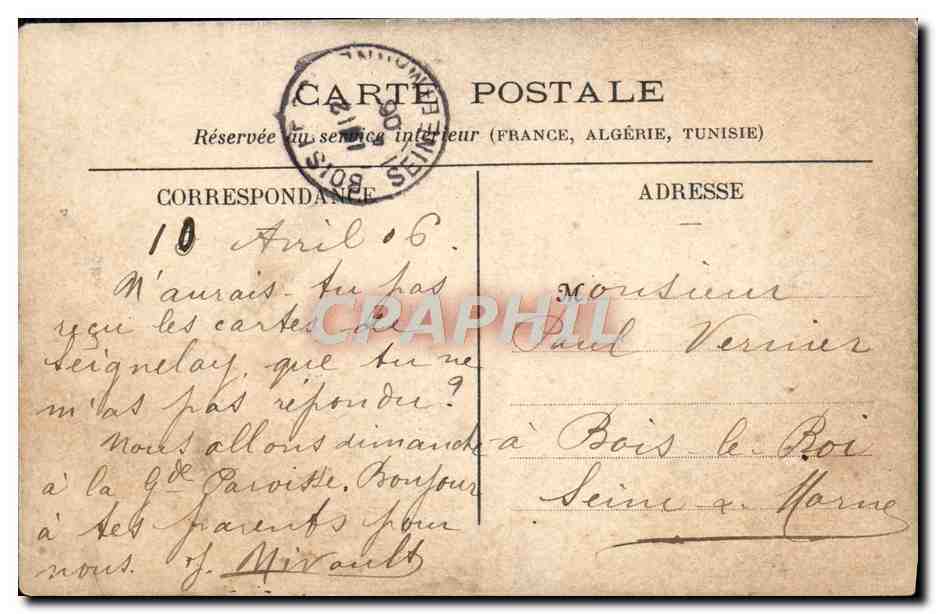 CARTE POSTALE
Réservée au service intérieur (FRANCE, ALGÉRIE, TUNISIE)
BOIS LE ROI
SEINE ET MARNE
06
CORRESPONDANCE
10 Avril 06.
N'aurais-tu pas
reçu les cartes de
Seignelay, que tu ne
m'as pas répondu?
Nous allons dimanche
à la Gde Paroisse. Bonjour
à tes parents pour
nous. Mivault
ADRESSE
Monsieur
Paul Vernier
à Bois-le-Roi
Seine & Marne
CPAPHIL